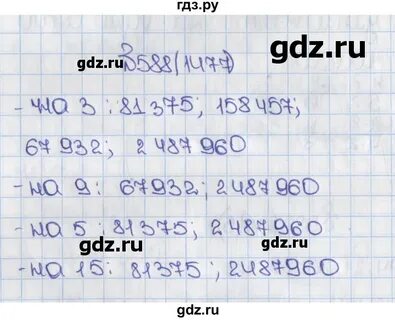 гдз.ру
gdz.ru
№588(1477)
- на 3 : 81 375; 158457;
67 932; 2 487 960
gdz.ru gdz.ru
- на 9: 67932; 2487960
- на 5: 81375; 2487960
gdz.ru
- на 15: 81375; 2487960
gdz.ru